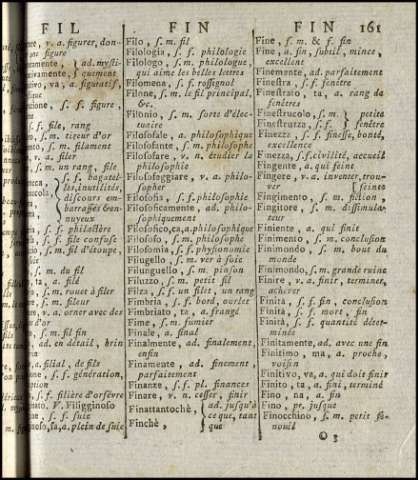 FIL
FIN
FIN 161
, v. a. figurer, don-
figurer
ad. mysti-
quement
, va, a. figuratif,
sione, s. f. figure,
, s. f. file, rang
m. tireur d'or
m. filament
v. a. filer
s. m. un rang, file
s. f. bagatel-
les, inutilités,
discours em-
barrassé & en-
nuyeux
s. f. philactère
s. f. file confuse
s. m. fil d'étoupe,
soie
s. m. du fil
ta, a. filé
s. m. rouet à filer
s. m. fileur
v. a. orner avec des
d'or
s. m. fil fin
ad. en détail, brin
a. filial, de fils
s. f. génération,
s. f. filière d'orfèvre
V. Filigginoso
s. f. suie
oso, sa, a. plein de suie
Filo, s. m. fil
Filologia, s. f. philologie
Filologo, s. m. philologue,
qui aime les belles lettres
Filomena, s. f. rossignol
Filone, s. m. le fil principal,
&c.
Filonio, s. m. sorte d'élec-
tuaire
Filosofale, a. philosophique
Filosofante, s. m. philosophe
Filosofare, v. n. étudier la
philosophie
Filosofeggiare, v. a. philo-
sopher
Filosofia, s. f. philosophie
Filosoficamente, ad. philo-
sophiquement
Filosofico, ca, a. philosophique
Filosofo, s. m. philosophe
Filosomia, s. f. physionomie
Filugello, s. m. ver à soie
Filunguello, s. m. pinson
Filuzzo, s. m. petit fil
Filza, s. f. un filet, un rang
Fimbria, s. f. bord, ourlet
Fimbriato, ta, a. frangé
Fime, s. m. fumier
Finale, a. final
Finalmente, ad. finalement,
enfin
Finamente, ad. finement,
parfaitement
Finanze, s. f. pl. finances
Finare, v. n. cesser, finir
Finattantochè,
Finchè,
ad. jusqu'à
ce que, tant
que
Fine, s. m. & f. fin
Fine, a. fin, subtil, mince,
excellent
Finemente, ad. parfaitement
Finestra, s. f. fenêtre
Finestrato, ta, a. rang de
fenêtres
Finestrucolo, s. m.
Finestruzza, s. f.
petite
fenêtre
Finezza, s. f. finesse, bonté,
excellence
Finezza, s. f. civilité, accueil
Fingente, a. qui feint
Fingere, v. a. inventer, trou-
ver
feindre
Fingimento, s. m. fiction,
Fingitore, s. m. dissimula-
teur
Finiente, a. qui finit
Finimento, s. m. conclusion
Finimondo, s. m. bout du
monde
Finimondo, s. m. grande ruine
Finire, v. a. finir, terminer,
achever
Finità, s. f. fin, conclusion
Finità, s. f. mort, fin
Finità, s. f. quantité déter-
minée
Finitamente, ad. avec une fin
Finitimo, ma, a. proche,
voisin
Finitivo, va, a. qui doit finir
Finito, ta, a. fini, terminé
Fino, na, a. fin
Fino, pr. jusque
Finocchino, s. m. petit fe-
nouil
O 3